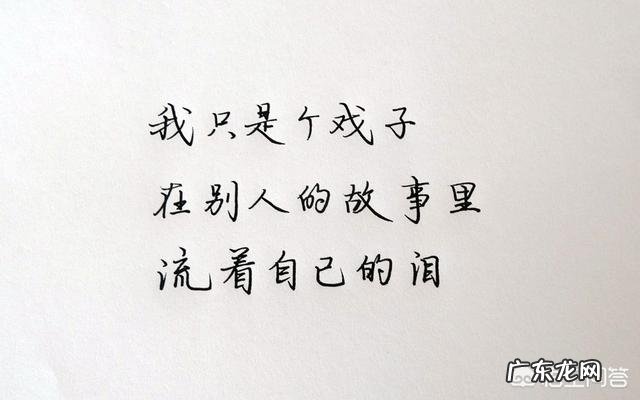 我只是个戏子
在别人的故事里
流着自己的泪
广东龙网